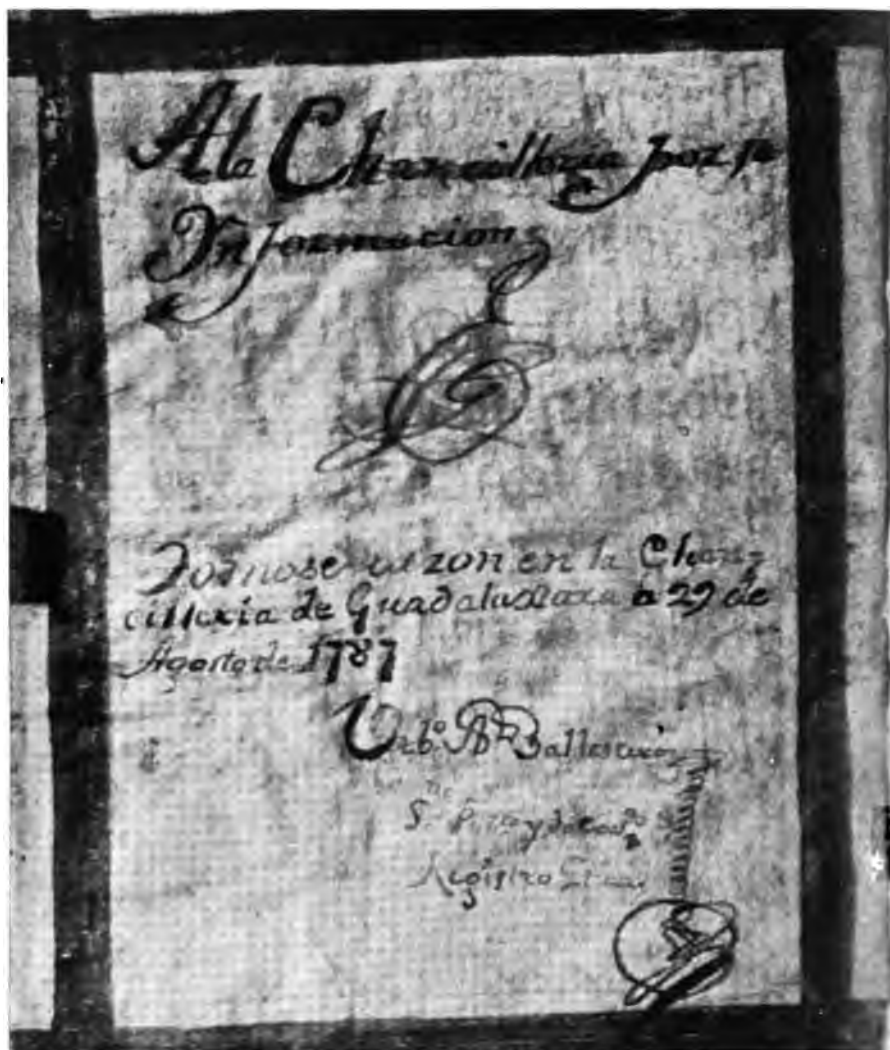 A la Chancilleria por su
Ynformacion
Tomose razon en la Chan-
cilleria de Guadalaxara a 29 de
Agosto de 1787
Urb.º Ballesteros
Registro